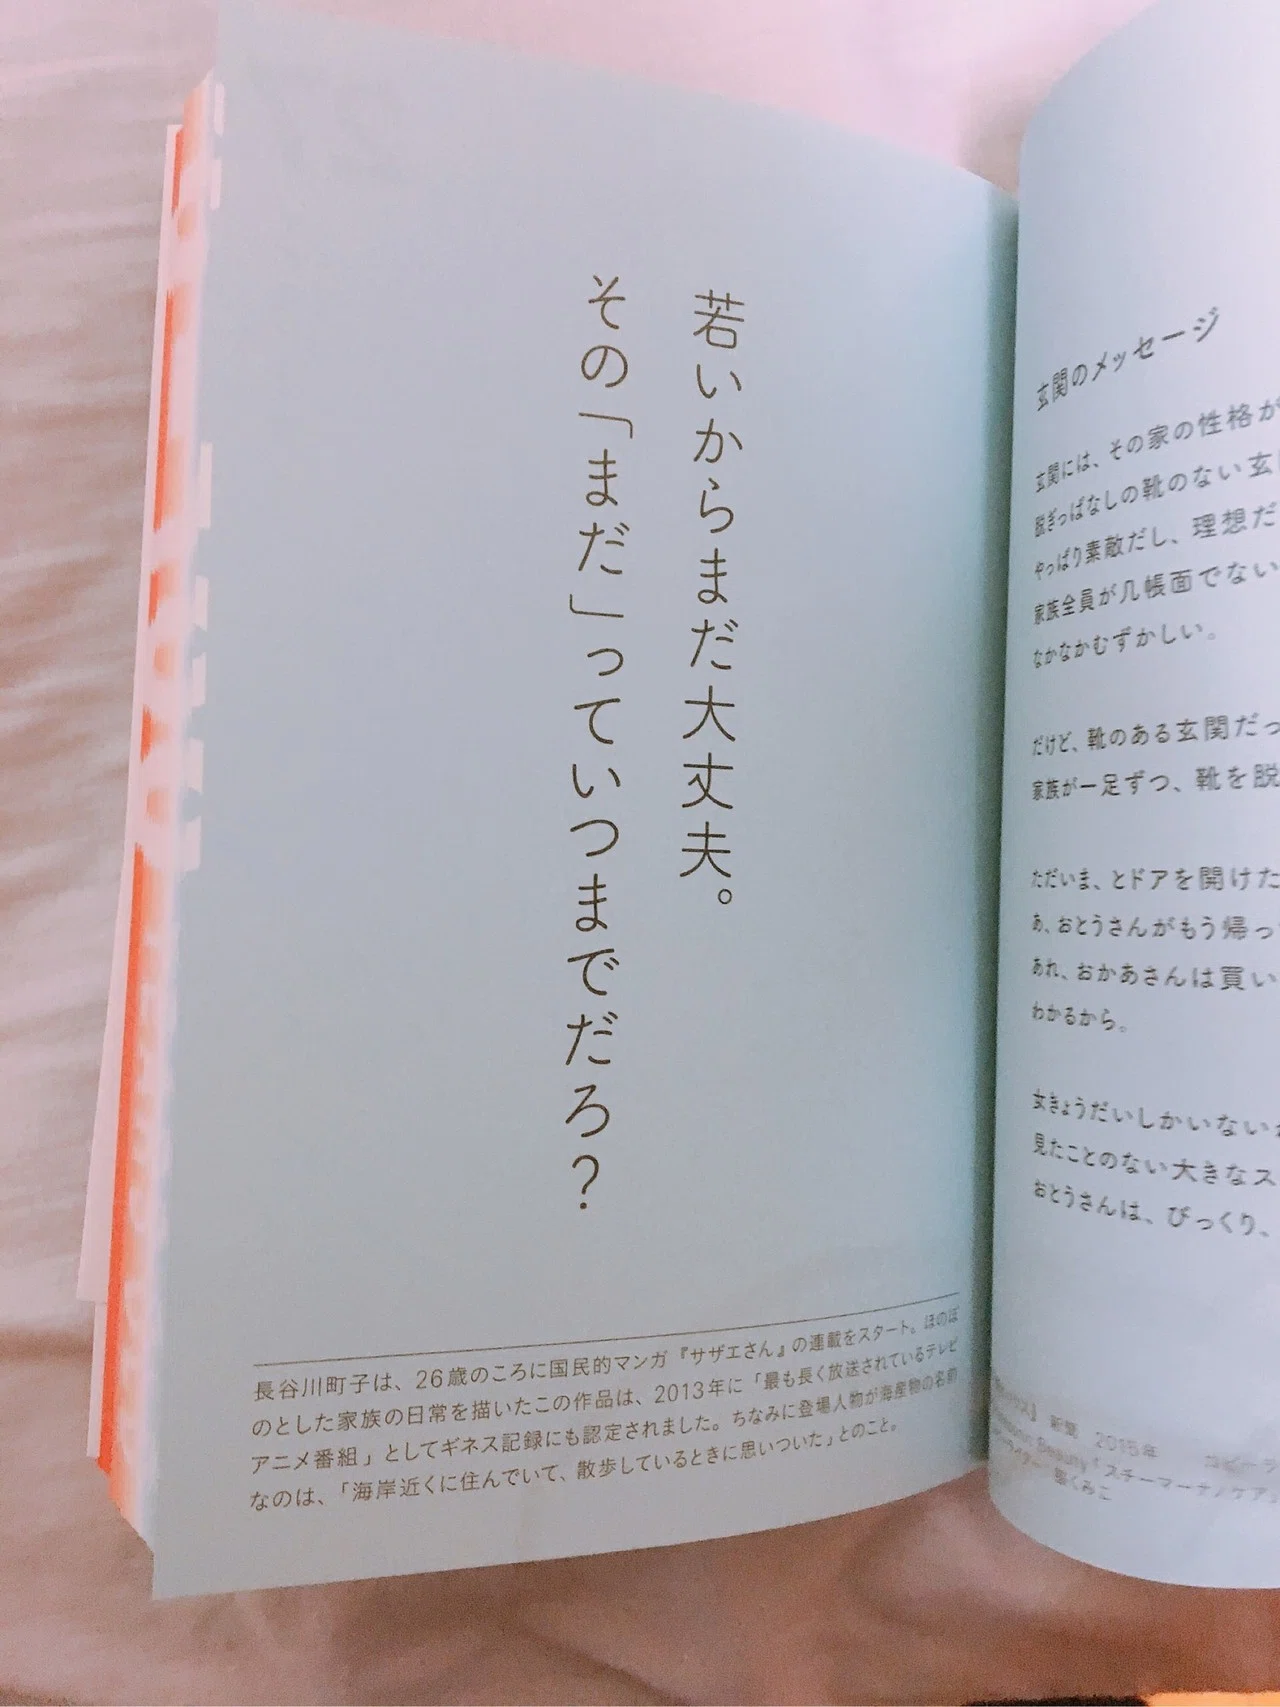 若いからまだ大丈夫。
その「まだ」っていつまでだろ？
長谷川町子は、26歳のころに国民的マンガ『サザエさん』の連載をスタート。ほのぼ
のとした家族の日常を描いたこの作品は、2013年に「最も長く放送されているテレビ
アニメ番組」としてギネス記録にも認定されました。ちなみに登場人物が海産物の名前
なのは、「海岸近くに住んでいて、散歩しているときに思いついた」とのこと。
玄関のメッセージ
玄関には、その家の性格が
脱ぎっぱなしの靴のない玄
やっぱり素敵だし、理想だ
家族全員が几帳面でない
なかなかむずかしい。
だけど、靴のある玄関だっ
家族が一足ずつ、靴を脱
ただいま、とドアを開けた
あ、おとうさんがもう帰っ
あれ、おかあさんは買い
わかるから。
女きょうだいしかいない
見たことのない大きなス
おとうさんは、びっくり、
新聞 2015年 コピーラ
Beauty「スチーマーナノケア」